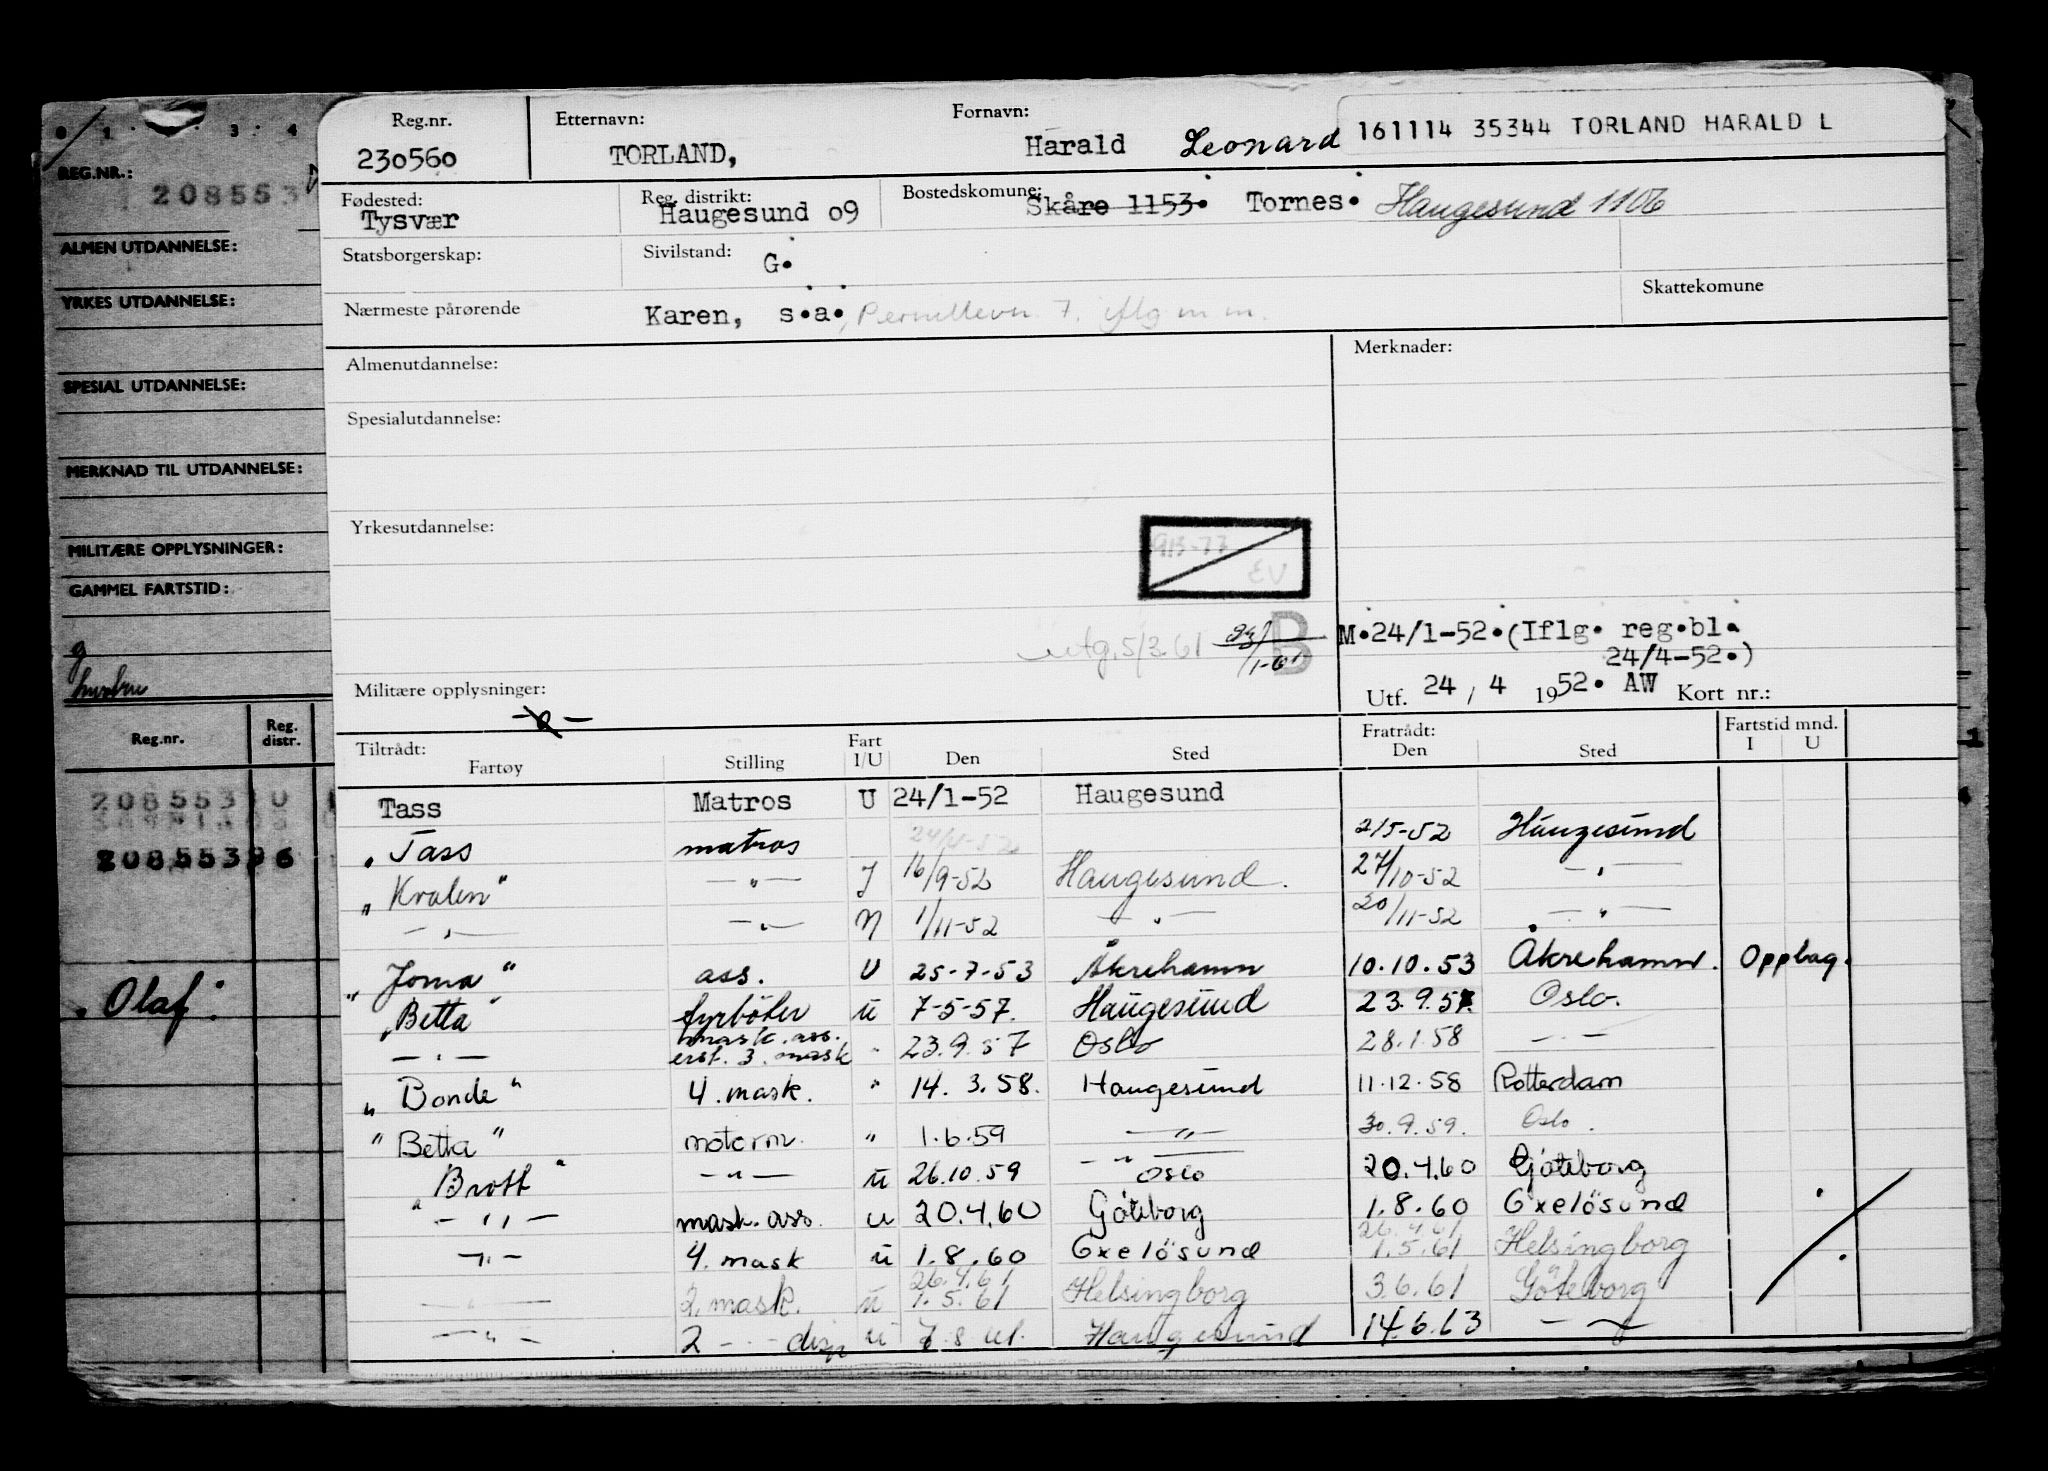 0 1 3 4
REG.NR.:
208553
ALMEN UTDANNELSE:
YRKES UTDANNELSE:
SPESIAL UTDANNELSE:
MERKNAD TIL UTDANNELSE:
MILITÆRE OPPLYSNINGER:
GAMMEL FARTSTID:
Reg.nr. Reg. distr.
208553 0
20855396
"Olaf"
Reg.nr. Etternavn: Fornavn:
230560 TORLAND, Harald Leonard 161114 35344 TORLAND HARALD L
Fødested: Reg. distrikt: Bostedskomune:
Tysvær Haugesund 09 Skåre 1153. Tornes. Haugesund 1106
Statsborgerskap: Sivilstand: G.
Skattekomune
Nærmeste pårørende Karen, s.a. 7. iflg m m.
Almenutdannelse: Merknader:
Spesialutdannelse:
Yrkesutdannelse:
EV
utg. 5/3.61 B M.24/1-52.(Iflg. reg.bl.
24/4-52.)
Militære opplysninger: Utf. 24 / 4 1952. AW Kort nr.:
Tiltrådt: Fratrådt: Fartstid mnd.
Fartøy Stilling Fart I/U Den Sted Den Sted I U
Tass Matros U 24/1-52 Haugesund
" Tass matros 2/5-52 Haugesund
" Kvalen" —"— I 16/9-52 Haugesund. 27/10-52 —"—
—"— —"— N 1/11-52 —"— 20/11-52 —"—
" Joma" ass. U 25-7-53 Åkrehamn 10.10.53 Åkrehamn. Opplag.
" Betta" fyrbøter u 7-5-57. Haugesund 23.9.57. Oslo.
—"— mask. ass. erst. 3. mask " 23.9.57 Oslo 28.1.58 —"—
" Bonde" 4. mask. " 14. 3.58. Haugesund 11.12.58 Rotterdam
" Betta" motorm. " 1.6.59 —"— 30.9.59. Oslo.
" Brott" —"— u 26.10.59 —"— Oslo 20.4.60 Göteborg
—"— mask. ass. u 20.4.60 Göteborg 1.8.60 Oxelösund
—"— 4. mask u 1.8.60 Oxelösund 26.4.61 1.5.61 Helsingborg
—"— 2. mask. u 26.4.61 1.5.61 Helsingborg 3.6.61 Göteborg
—"— 2 —"— disp u Haugesund 14.6.63 —"—